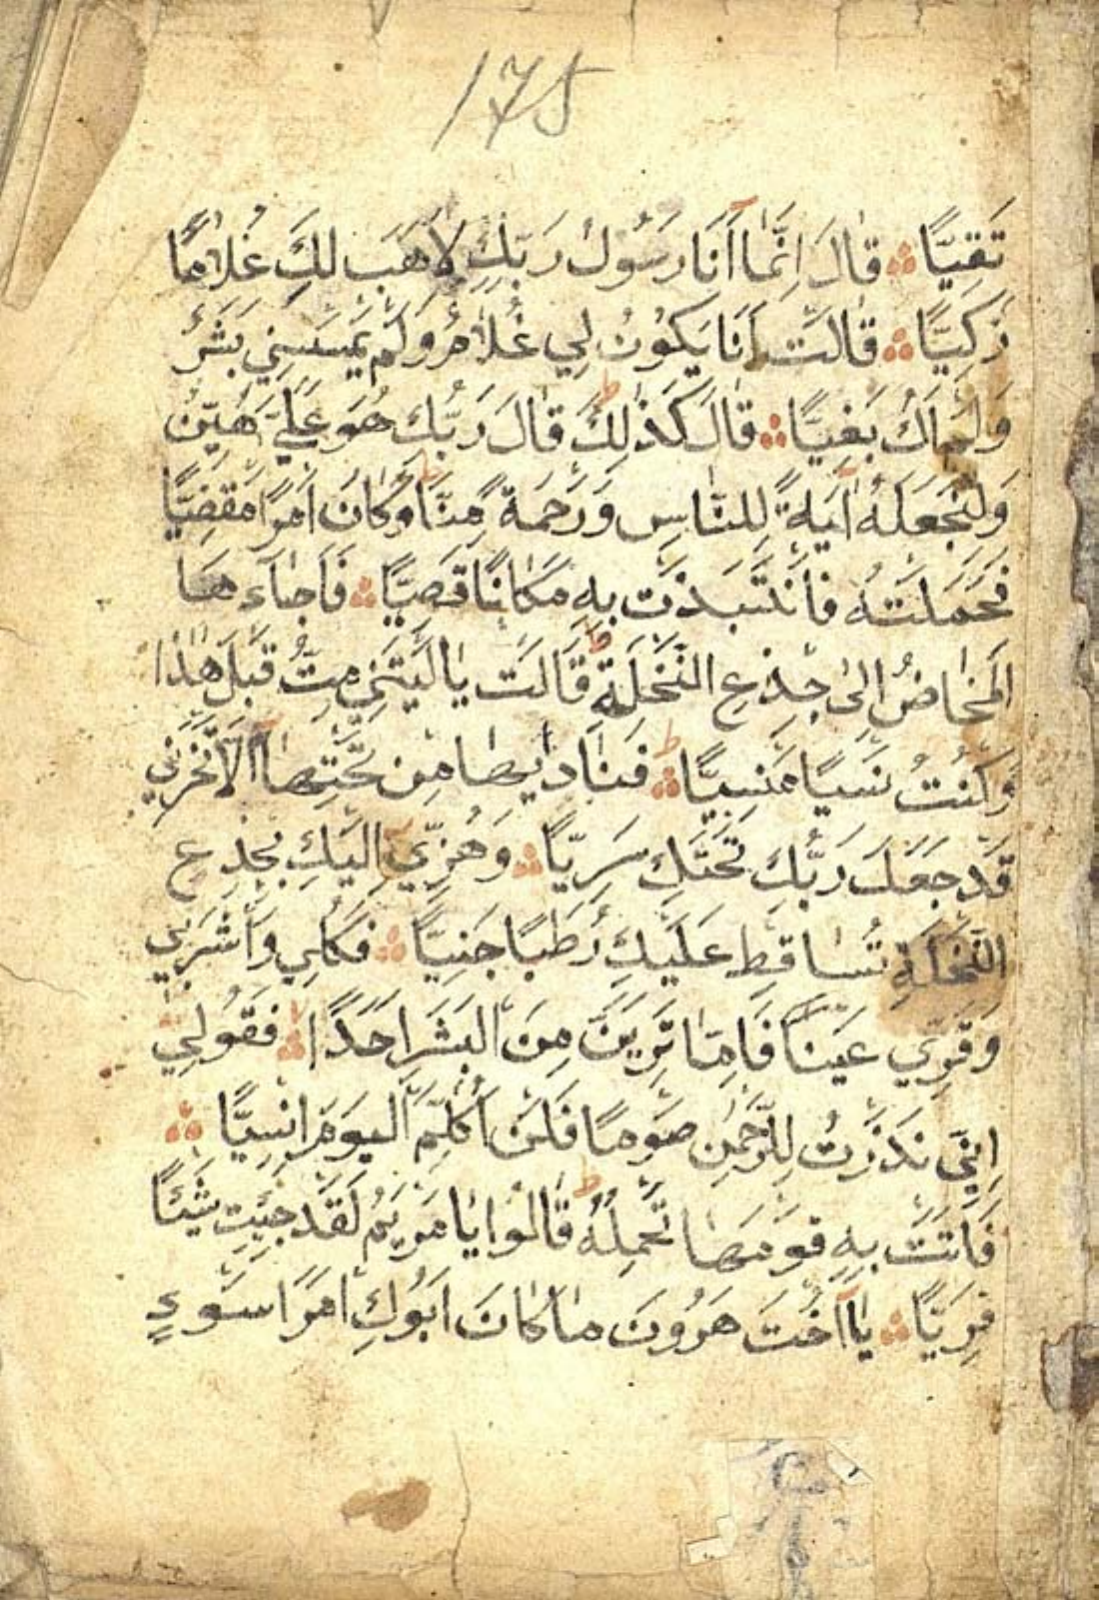 175
تَقِيًّا ؞ قَالَ اِنَّمَا اَنَا رَسُولُ رَبِّكِ لِاَهَبَ لَكِ غُلَامًا
زَكِيًّا ؞ قَالَتْ اَنَا يَكُونُ لِي غُلَامٌ وَلَمْ يَمْسَسْنِي بَشَرٌ
وَلَمْ اَكُ بَغِيًّا ؞ قَالَ كَذٰلِكَ ط قَالَ رَبُّكِ هُوَ عَلَيَّ هَيِّنٌ
وَلِنَجْعَلَهُ اٰيَةً لِلنَّاسِ وَرَحْمَةً مِنَّا ط وَكَانَ اَمْرًا مَقْضِيًّا
فَحَمَلَتْهُ فَانْتَبَذَتْ بِهِ مَكَانًا قَصِيًّا ؞ فَاَجَاءَهَا
الْمَخَاضُ اِلٰى جِذْعِ النَّخْلَةِ ط قَالَتْ يَالَيْتَنِي مِتُّ قَبْلَ هٰذَا
وَكُنْتُ نَسْيًا مَنْسِيًّا ط ؞ فَنَادٰيهَا مِنْ تَحْتِهَا اَلَّا تَحْزَنِي
قَدْ جَعَلَ رَبُّكِ تَحْتَكِ سَرِيًّا ؞ وَهُزِّي اِلَيْكِ بِجِذْعِ
النَّخْلَةِ تُسَاقِطْ عَلَيْكِ رُطَبًا جَنِيًّا ؞ فَكُلِي وَاشْرَبِي
وَقَرِّي عَيْنًا فَاِمَّا تَرَيِنَّ مِنَ الْبَشَرِ اَحَدًا ؞ فَقُولِي
اِنِّي نَذَرْتُ لِلرَّحْمٰنِ صَوْمًا فَلَنْ اُكَلِّمَ الْيَوْمَ اِنْسِيًّا ؞
فَاَتَتْ بِهِ قَوْمَهَا تَحْمِلُهُ ط قَالُوا يَا مَرْيَمُ لَقَدْ جِئْتِ شَيْئًا
فَرِيًّا ؞ يَا اُخْتَ هَرُونَ مَا كَانَ اَبُوكِ امْرَاَ سَوْءٍ